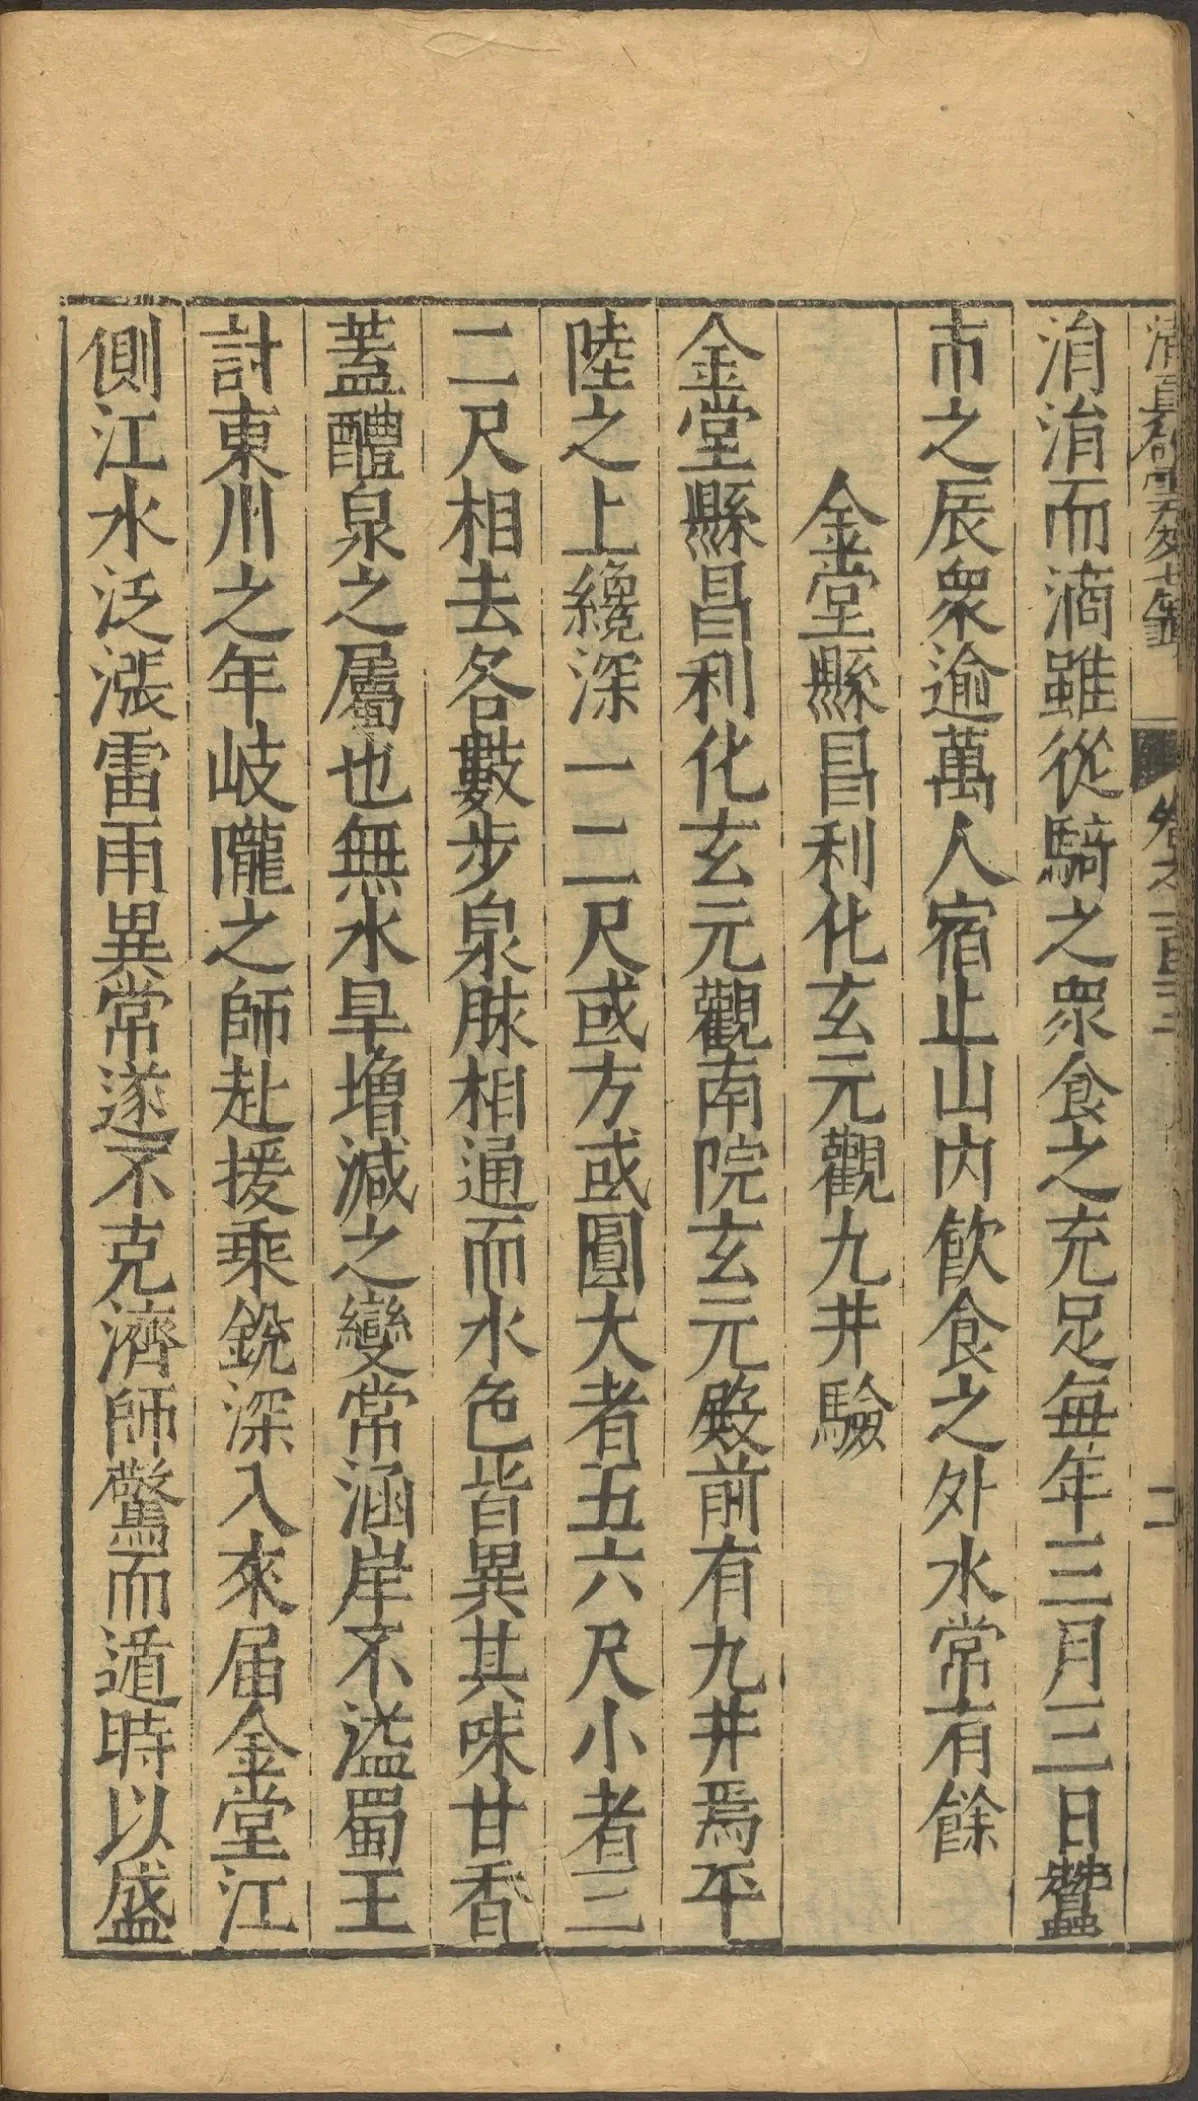 涓涓而滴雖從騎之衆食之充足每年三月三日蠶
市之辰衆逾萬人宿止山內飲食之外水常有餘
金堂縣昌利化玄元觀九井驗
金堂縣昌利化玄元觀南院玄元殿前有九井焉平
陸之上纔深一二尺或方或圓大者五六尺小者三
二尺相去各數步泉脉相通而水色皆異其味甘香
蓋醴泉之屬也無水旱增減之變常涵岸不溢蜀王
討東川之年岐隴之師赴援乘銳深入來届金堂江
側江水泛漲雷雨異常遂不克濟師驚而遁時以盛